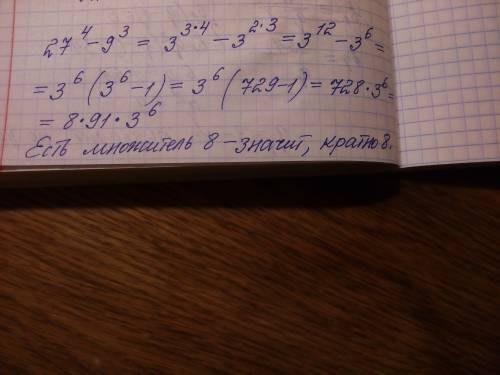 27⁴ - 9³ = 3³·⁴ - 3²·³ = 3¹² - 3⁶ =
= 3⁶ (3⁶ - 1) = 3⁶ (729 - 1) = 728 · 3⁶ =
= 8 · 91 · 3⁶
Есть множитель 8 - значит, кратно 8.